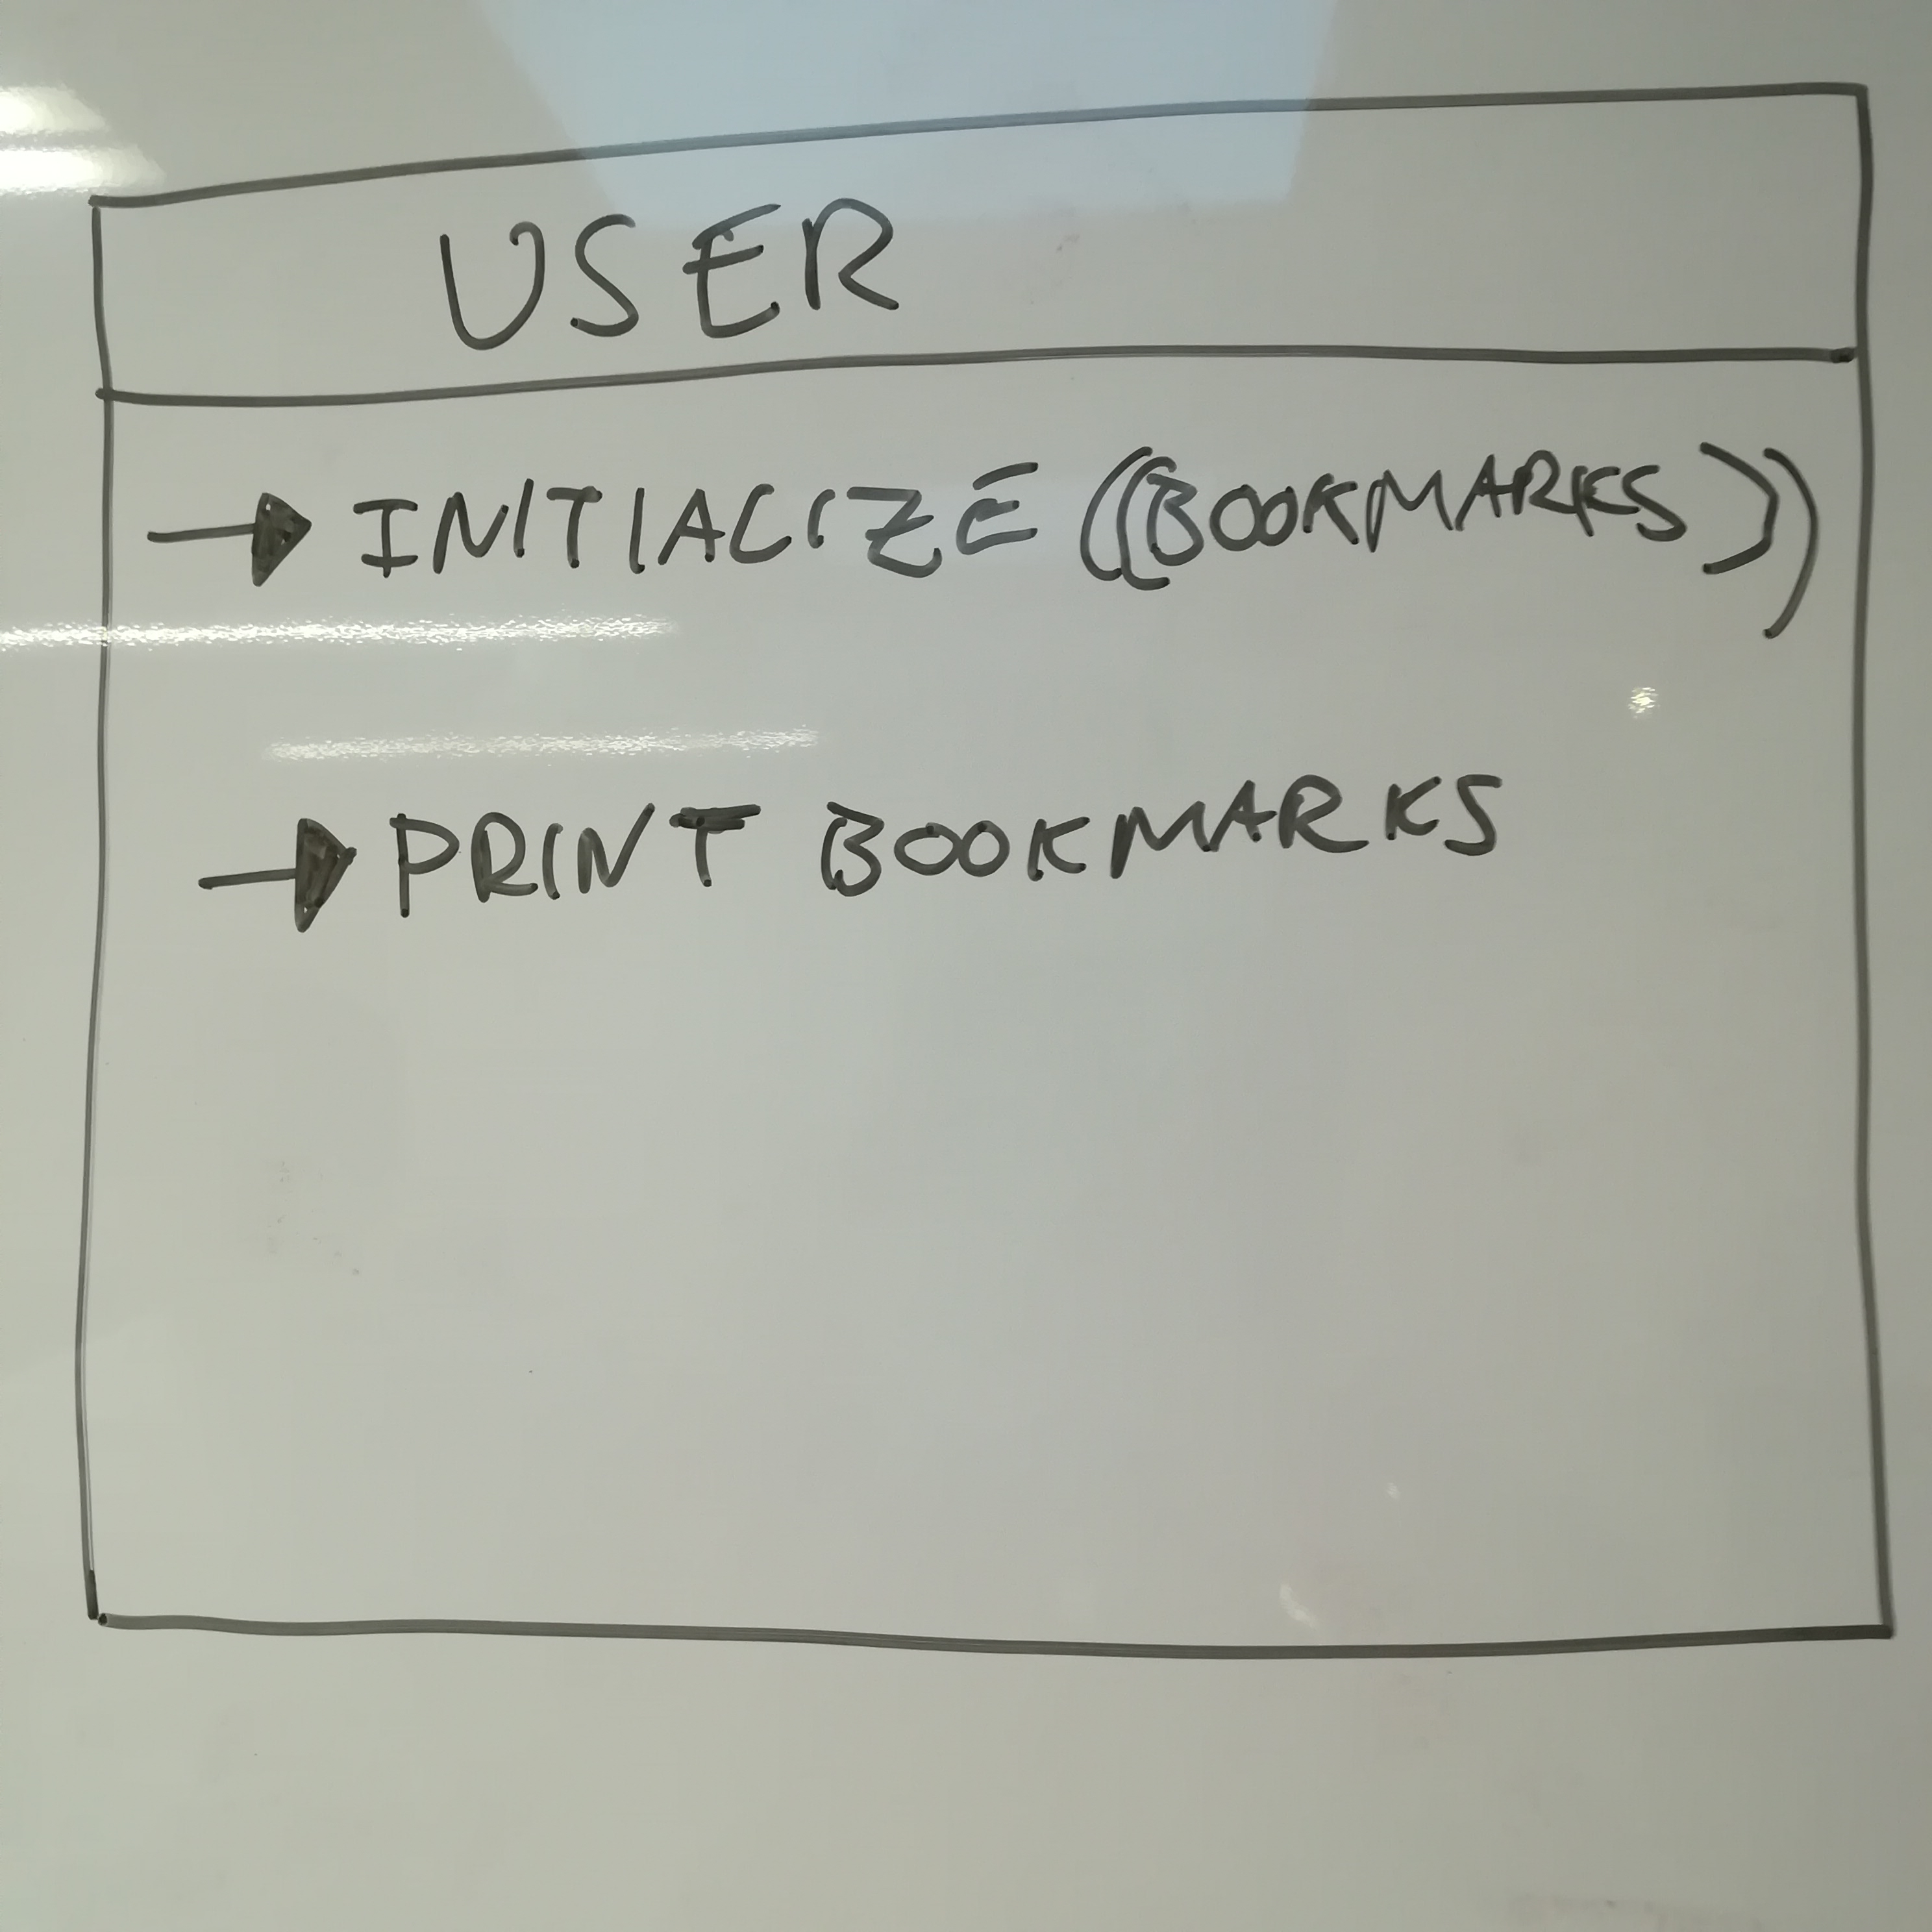 USER
INITIALIZE ((BOOKMARKS))
PRINT BOOKMARKS